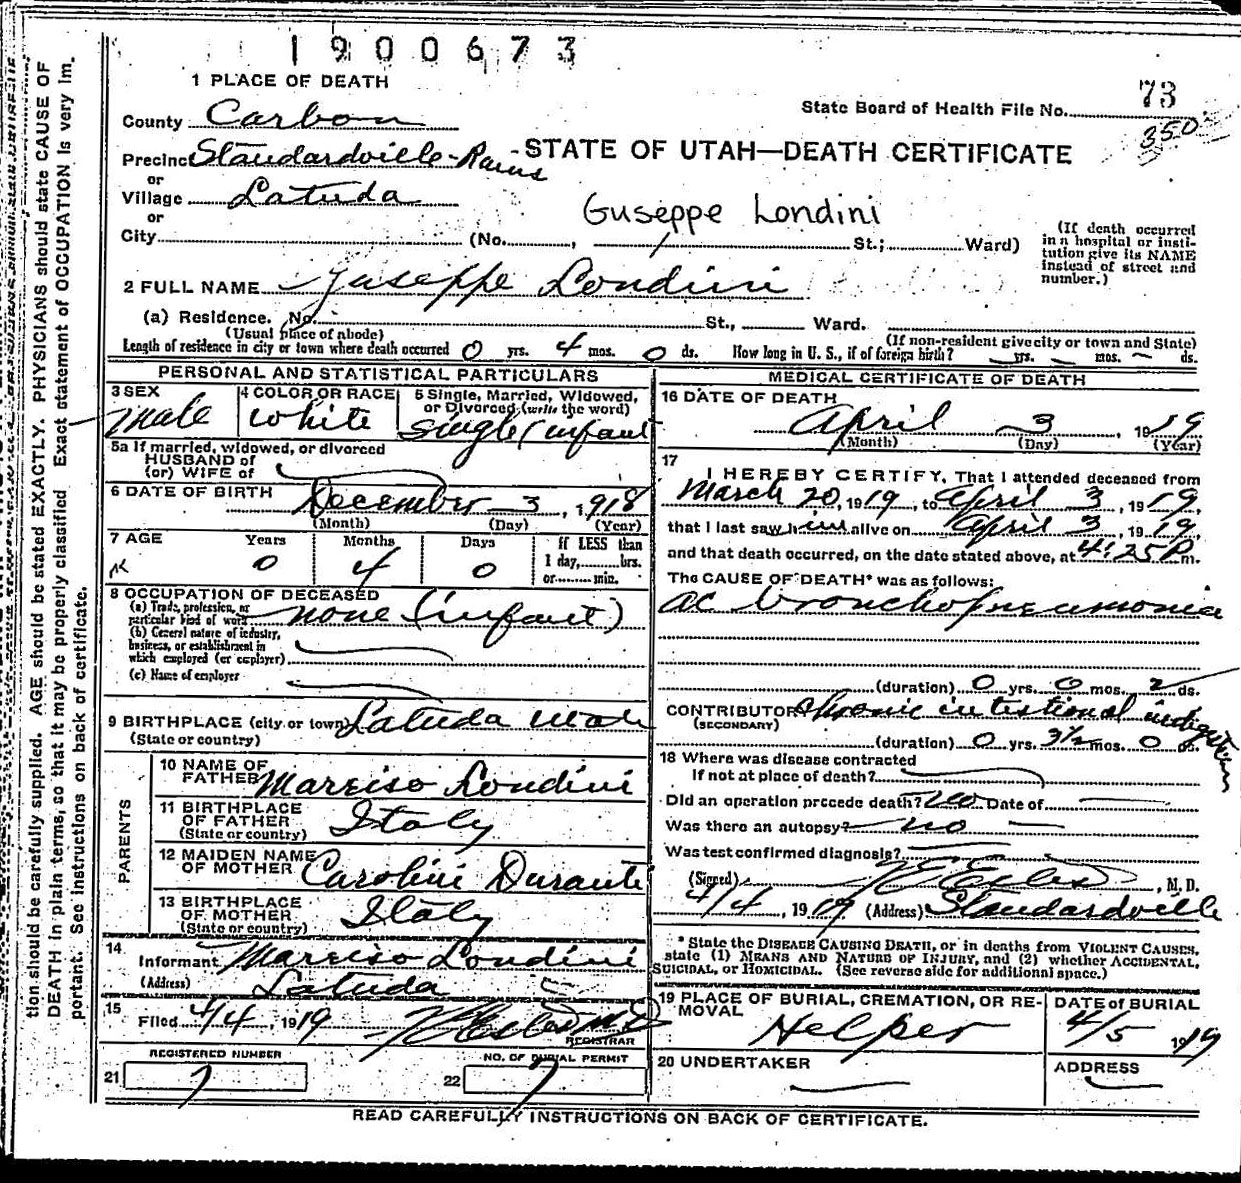 1900673
1 PLACE OF DEATH
State Board of Health File No. 73
County Carbon
350
Precinct Standardville-Rains
STATE OF UTAH—DEATH CERTIFICATE
or
Village Latuda
Guseppe Londini
or
City (No. , St.; Ward)
(If death occurred in a hospital or insti-tution give its NAME instead of street and number.)
2 FULL NAME Juseppe Londini
(a) Residence. No. St., Ward.
(Usual place of abode) (If non-resident give city or town and State)
Length of residence in city or town where death occurred 0 yrs. 4 mos. 0 ds. How long in U. S., if of foreign birth? yrs. mos. ds.
PERSONAL AND STATISTICAL PARTICULARS
3 SEX Male
4 COLOR OR RACE White
5 Single, Married, Widowed, or Divorced (write the word) Single (infant
5a If married, widowed, or divorced
HUSBAND of
(or) WIFE of
6 DATE OF BIRTH December 3, 1918
(Month) (Day) (Year)
7 AGE Years Months Days If LESS than
0 4 0 1 day, hrs.
or min.
8 OCCUPATION OF DECEASED
(a) Trade, profession, or
particular kind of work none (infant)
(b) General nature of industry,
business, or establishment in
which employed (or employer)
(c) Name of employer
9 BIRTHPLACE (city or town) Latuda Utah
(State or country)
PARENTS
10 NAME OF
FATHER Marciso Londini
11 BIRTHPLACE
OF FATHER Italy
(State or country)
12 MAIDEN NAME
OF MOTHER Carolini Duranti
13 BIRTHPLACE
OF MOTHER Italy
(State or country)
14
Informant Marciso Londini
(Address) Latuda
15
Filed 4/4, 1919
REGISTRAR
REGISTERED NUMBER
21 7
NO. OF BURIAL PERMIT
22 7
MEDICAL CERTIFICATE OF DEATH
16 DATE OF DEATH
April 3, 1919
(Month) (Day) (Year)
17
I HEREBY CERTIFY, That I attended deceased from
March 20, 1919, to April 3, 1919,
that I last saw him alive on April 3, 1919,
and that death occurred, on the date stated above, at 4:25 P m.
The CAUSE OF DEATH* was as follows:
ac bronchopneumonia
(duration) 0 yrs. 0 mos. 2 ds.
CONTRIBUTORY chronic intestional indigestion
(SECONDARY)
(duration) 0 yrs. 3½ mos. 0 ds.
18 Where was disease contracted
If not at place of death?
Did an operation precede death? no Date of
Was there an autopsy? no
Was test confirmed diagnosis?
(Signed) , M. D.
4/4, 1919 (Address) Standardville
* State the DISEASE CAUSING DEATH, or in deaths from VIOLENT CAUSES,
state (1) MEANS AND NATURE OF INJURY, and (2) whether ACCIDENTAL,
SUICIDAL, or HOMICIDAL. (See reverse side for additional space.)
19 PLACE OF BURIAL, CREMATION, OR RE-
MOVAL Helper
DATE of BURIAL
4/5 1919
20 UNDERTAKER
ADDRESS
READ CAREFULLY INSTRUCTIONS ON BACK OF CERTIFICATE.
tion should be carefully supplied. AGE should be stated EXACTLY. PHYSICIANS should state CAUSE OF
DEATH in plain terms, so that it may be properly classified. Exact statement of OCCUPATION is very im-
portant. See instructions on back of certificate.